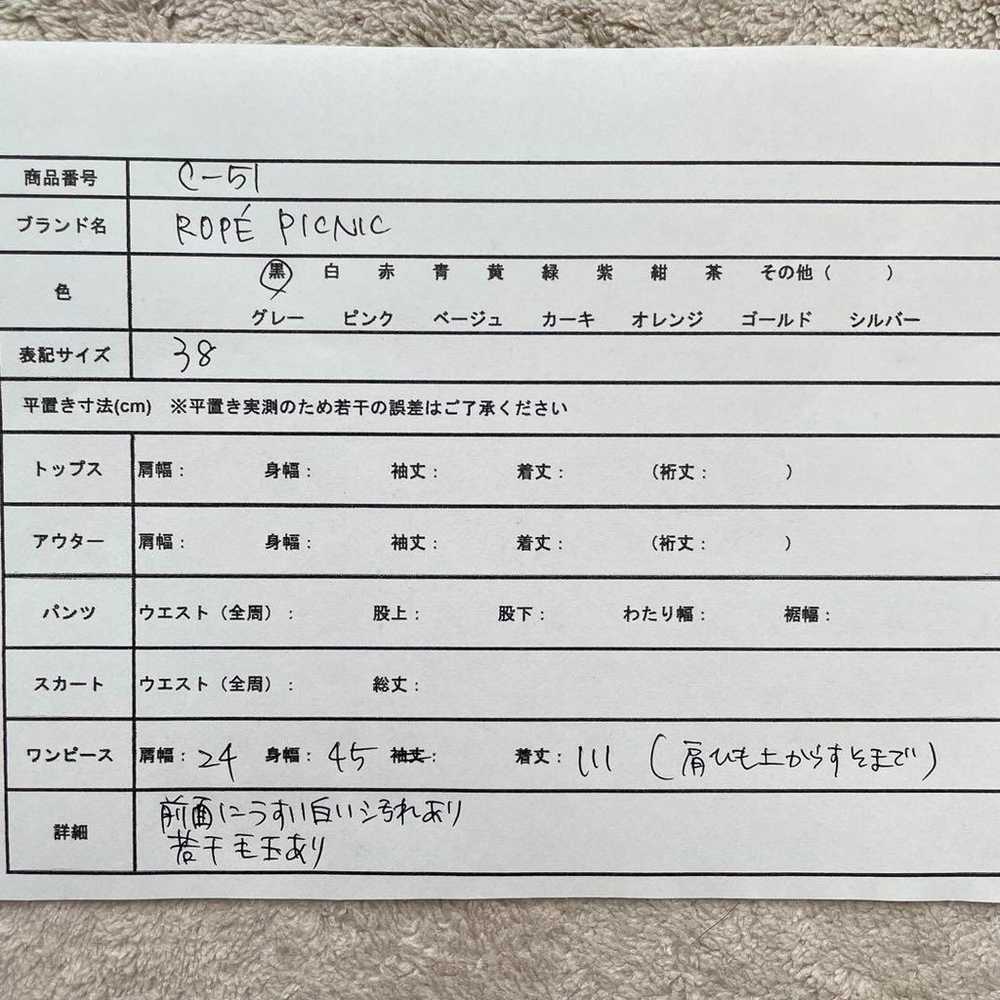 商品番号 C-51
ブランド名 ROPÉ PICNIC
色 黒 白 赤 青 黄 緑 紫 紺 茶 その他（ ）
グレー ピンク ベージュ カーキ オレンジ ゴールド シルバー
表記サイズ 38
平置き寸法(cm) ※平置き実測のため若干の誤差はご了承ください
トップス 肩幅： 身幅： 袖丈： 着丈： （裄丈： ）
アウター 肩幅： 身幅： 袖丈： 着丈： （裄丈： ）
パンツ ウエスト（全周）： 股上： 股下： わたり幅： 裾幅：
スカート ウエスト（全周）： 総丈：
ワンピース 肩幅：24 身幅：45 袖丈： 着丈：111 (肩ひも上からすそまで)
詳細 前面にうすい白い汚れあり
若干毛玉あり